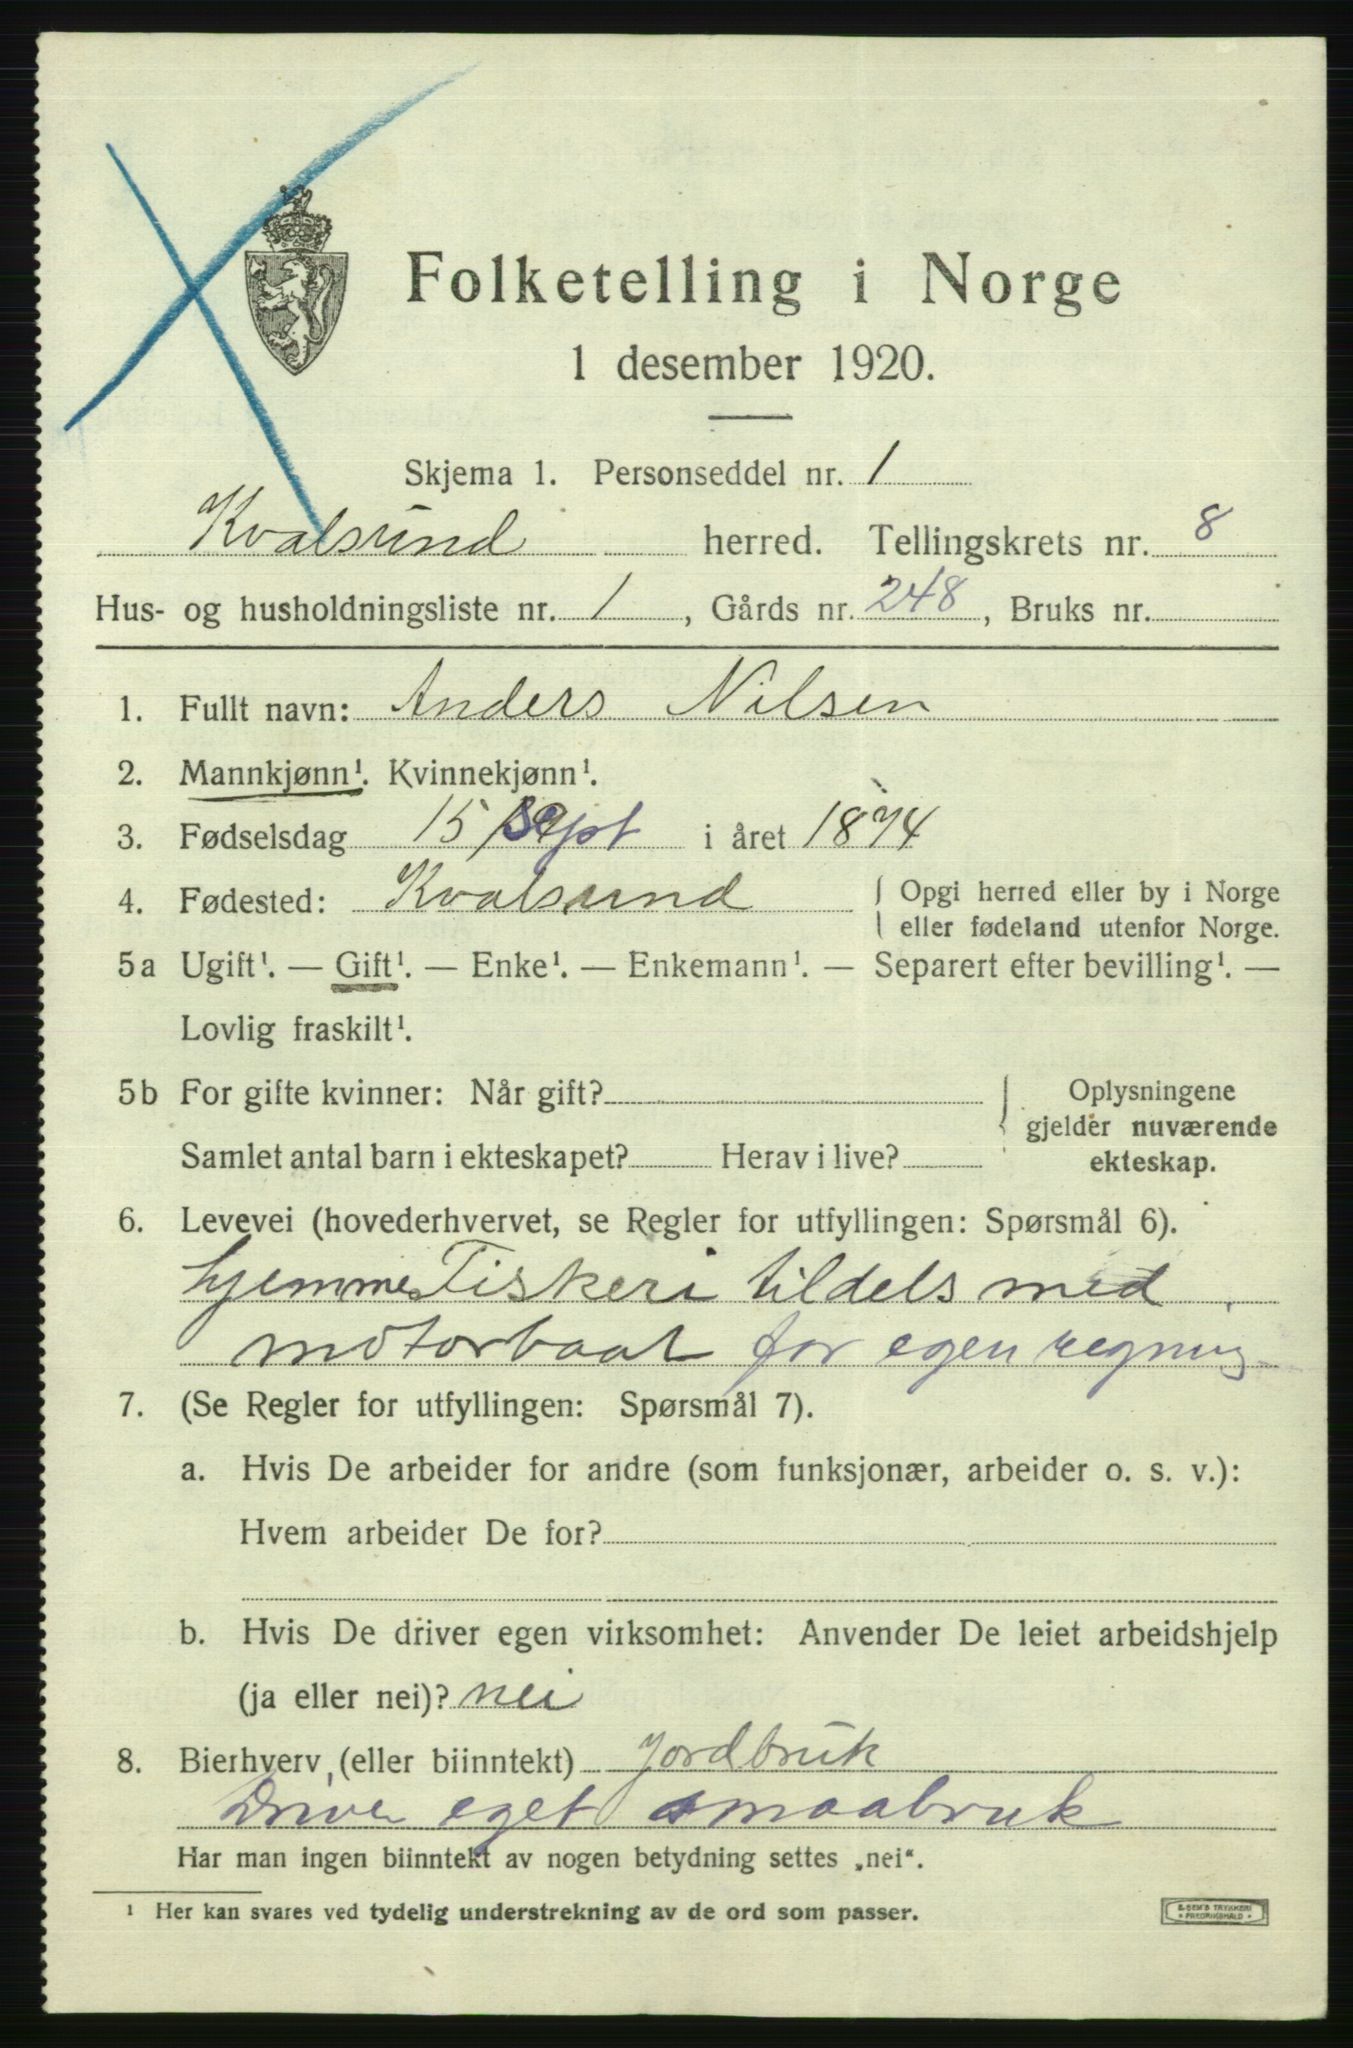 Folketelling i Norge
1 desember 1920.
Skjema 1. Personseddel nr. 1
Kvalsund herred. Tellingskrets nr. 8
Hus- og husholdningsliste nr. 1, Gårds nr. 248, Bruks nr.
1. Fullt navn: Anders Nilsen
2. Mannkjønn¹. Kvinnekjønn¹.
3. Fødselsdag 15 Sept i året 1874
4. Fødested: Kvalsund { Opgi herred eller by i Norge
eller fødeland utenfor Norge.
5a Ugift¹. — Gift¹. — Enke¹. — Enkemann¹. — Separert efter bevilling¹. —
Lovlig fraskilt¹.
5b For gifte kvinner: Når gift? { Oplysningene
gjelder nuværende
Samlet antal barn i ekteskapet? Herav i live? ekteskap.
6. Levevei (hovederhvervet, se Regler for utfyllingen: Spørsmål 6).
hjemmeFiskeri tildels med
motorbaat for egen regning
7. (Se Regler for utfyllingen: Spørsmål 7).
a. Hvis De arbeider for andre (som funksjonær, arbeider o. s. v.):
Hvem arbeider De for?
b. Hvis De driver egen virksomhet: Anvender De leiet arbeidshjelp
(ja eller nei)? nei
8. Bierhverv (eller biinntekt) Jordbruk
Driver eget smaabruk
Har man ingen biinntekt av nogen betydning settes „nei“.
¹ Her kan svares ved tydelig understrekning av de ord som passer.
E. SEM'S TRYKKERI
• FREDRIKSHALD •